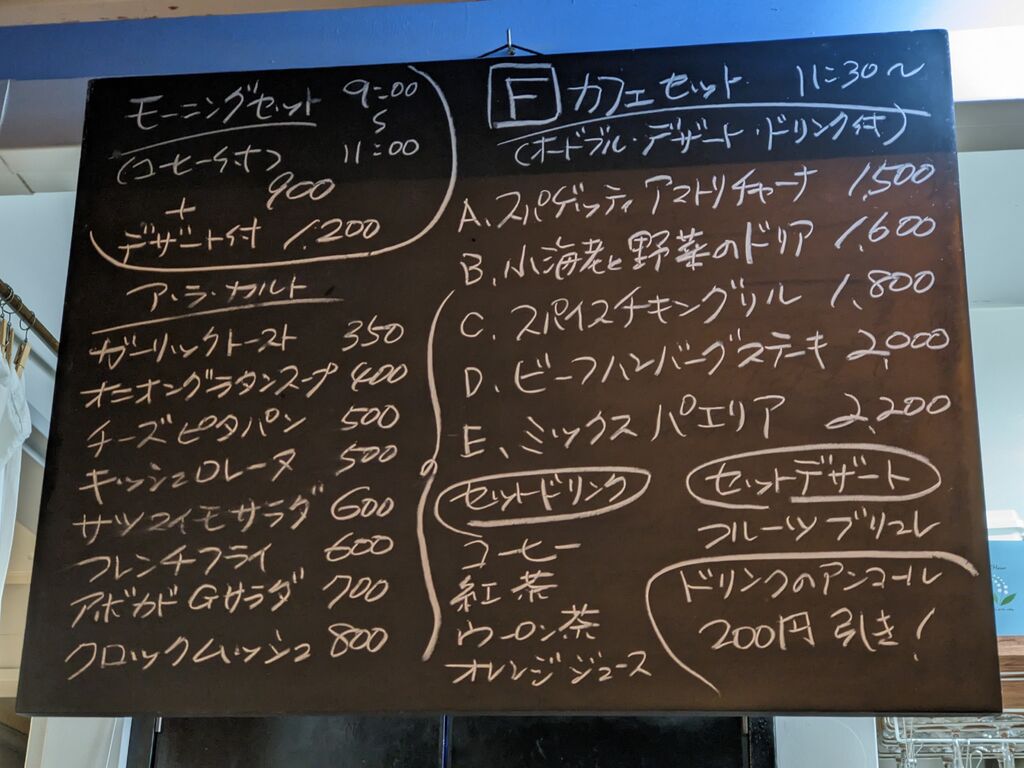 モーニングセット 9:00
〜
(コーヒー付) 11:00
900
+
デザート付 1,200
ア・ラ・カルト
ガーリックトースト 350
オニオングラタンスープ 400
チーズピタパン 500
キッシュロレーヌ 500
サツマイモサラダ 600
フレンチフライ 600
アボカドGサラダ 700
クロックムッシュ 800
F カフェセット 11:30〜
(オードブル・デザート・ドリンク付)
A、スパゲッティアマトリチャーナ 1,500
B、小海老と野菜のドリア 1,600
C、スパイスチキングリル 1,800
D、ビーフハンバーグステーキ 2,000
E、ミックスパエリア 2,200
セットドリンク
コーヒー
紅茶
ウーロン茶
オレンジジュース
セットデザート
フルーツブリュレ
ドリンクのアンコール
200円引き!